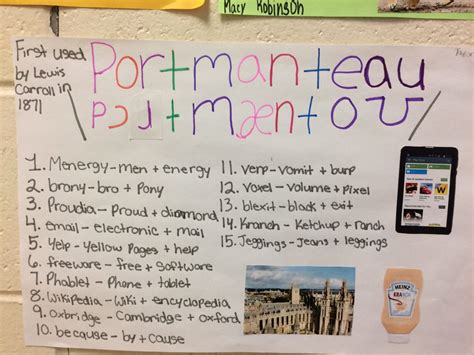 Macy Robinson
First used
by Lewis
Carroll in
1871
Portmanteau
pɔrtmæntoʊ
1. Menergy - men + energy
2. brony - bro + Pony
3. Proudia - Proud + diamond
4. email - electronic + mail
5. Yelp - yellow Pages + help
6. freeware - free + Software
7. Phablet - Phone + tablet
8. Wikipedia - Wiki + encyclopedia
9. Oxbridge - Cambridge + oxford
10. because - by + cause
11. verp - vomit + burp
12. Voxel - volume + pixel
13. blexit - black + exit
14. Kranch - Ketchup + ranch
15. Jeggings - Jeans + leggings
HEINZ
KRANCH